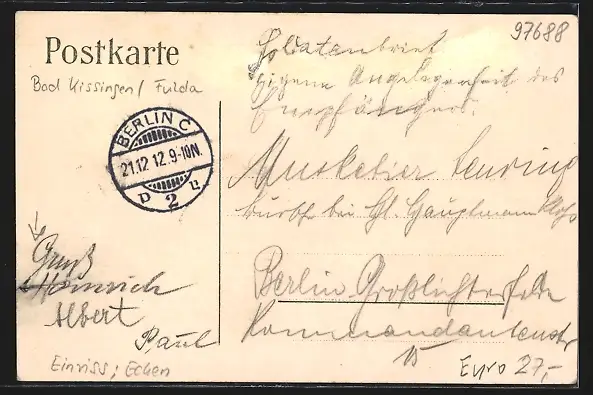 97688
Postkarte
Bad Kissingen / Fulda
Soldatenbrief
Eigene Angelegenheit des
Empfängers.
BERLIN C
21.12 12.9-10N.
D 2 u
Musketier
bei Hauptmann
Berlin Großlichterfelde
Kommandantenstr
15
Gruß
Heinrich
Albert
Paul
Einriss; Ecken
Euro 27,-